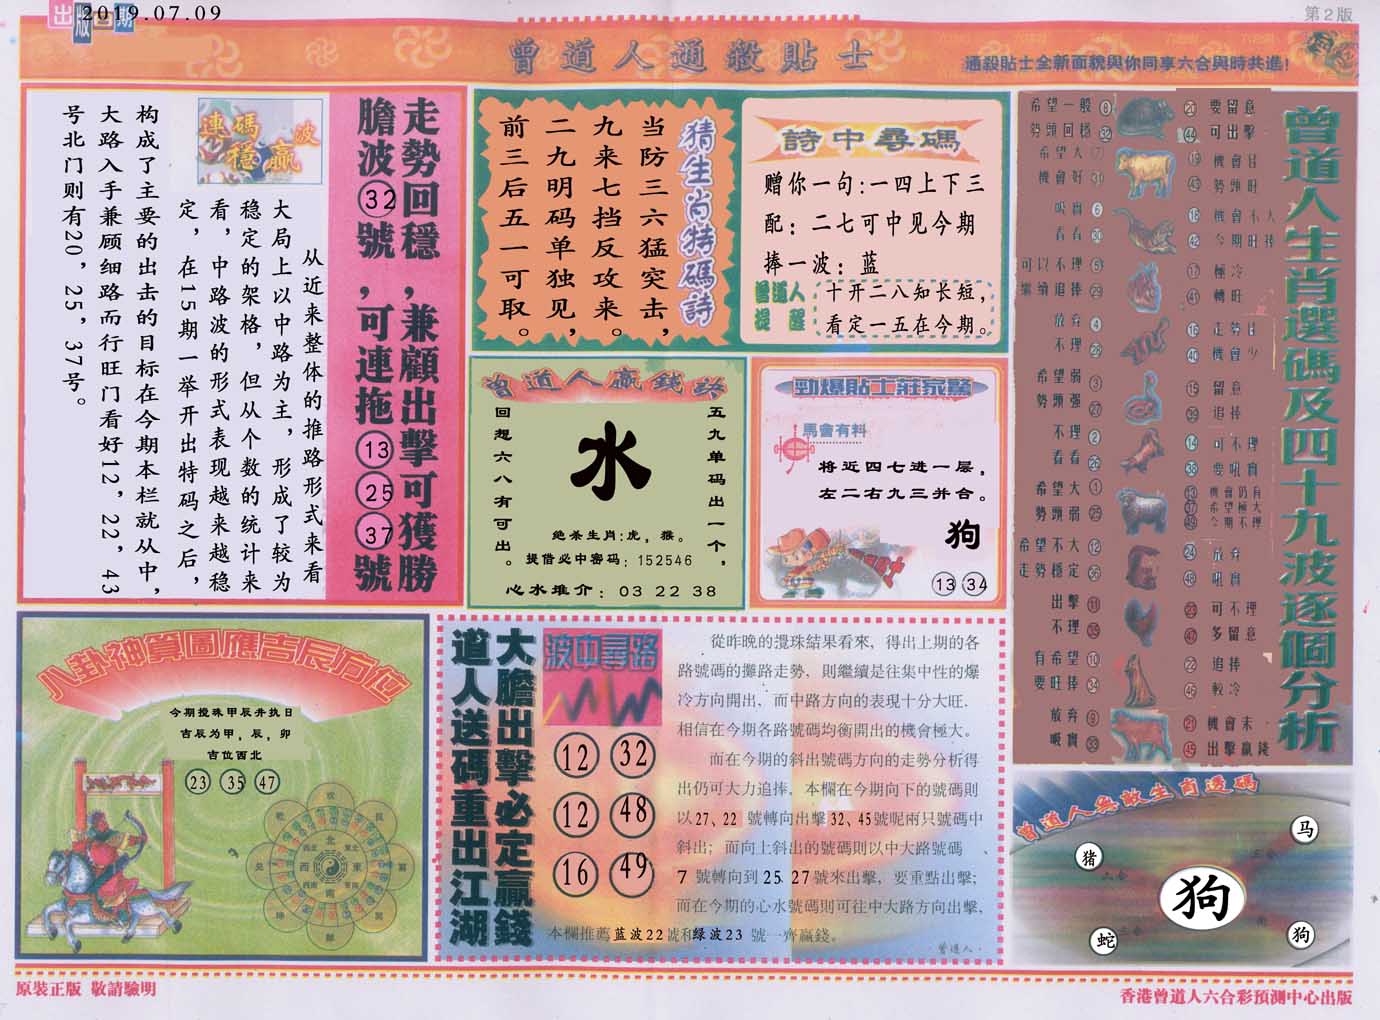 出版日期
2019.07.09
第2版
曾道人通殺貼士
通殺貼士全新面貌與你同享六合與時共進!
走勢回穩,兼顧出擊可獲勝
膽波32號,可連拖13 25 37號
連碼波
穩贏
从近来整体的推路形式来看
大局上以中路为主,形成了较为
稳定的架格,但从个数的统计来
看,中路波的形式表现越来越稳
定,在15期一举开出特码之后,
构成了主要的出击的目标在今期本栏就从中,
大路入手兼顾细路而行旺门看好12,22,43
号北门则有20,25,37号。
猜生肖特碼詩
当防三六猛突击,
九来七挡反攻来。
二九明码单独见,
前三后五一可取。
詩中尋碼
赠你一句:一四上下三
配:二七可中见今期
捧一波:蓝
曾道人
提醒
十开二八知长短,
看定一五在今期。
曾道人贏錢路
五九单码出一个,
回想六八有可出。
水
绝杀生肖:虎,猴。
提借必中密码:152546
心水推介:03 22 38
勁爆貼士莊家驚
馬會有料
将近四七进一层,
左二右九三并合。
狗
13 34
曾道人生肖選碼及四十九波逐個分析
希望一般 8
勢頭回穩 32
20 要留意
44 可出擊
希望大 7
機會好 31
19 機會佳
43 勢頭旺
吸實 6
看看 30
18 機會不大
42 今期旺捧
可以不理 5
繼續追捧 29
17 極冷
41 轉旺
放弃 4
不理 28
16 走勢佳
40 機會少
希望弱 3
勢頭强 27
15 留意
39 追捧
不理 2
看看 26
14 可不理
38 要吼實
希望大 1
勢頭弱 25
13 機會仍有
37 希望極大
49 今期不理
希望不大 12
走勢穩定 36
24 放弃
48 吼實
出擊 11
不理 35
23 可不理
47 多留意
有希望 10
要旺捧 34
22 追捧
46 較冷
放弃 9
吸實 33
21 機會末
45 出擊贏錢
八卦神算圖應吉辰方位
今期搅珠甲辰并执日
吉辰为甲,辰,卯
吉位西北
23 35 47
大膽出擊必定贏錢
道人送碼重出江湖
波中尋路
12 32
12 48
16 49
從昨晚的攪珠結果看來,得出上期的各
路號碼的攤路走勢,則繼續是往集中性的爆
冷方向開出,而中路方向的表現十分大旺.
相信在今期各路號碼均衡開出的機會極大。
而在今期的斜出號碼方向的走勢分析得
出仍可大力追捧,本欄在今期向下的號碼則
以27、22 號轉向出擊32、45號呢兩只號碼中
斜出;而向上斜出的號碼則以中大路號碼、
7 號轉向到25 27號來出擊,要重點出擊;
而在今期的心水號碼則可往中大路方向出擊,
本欄推薦蓝波22號和绿波23 號一齊贏錢。
曾道人·
曾道人無敵生肖透碼
马
猪
狗
蛇
狗
原裝正版 敬請驗明
香港曾道人六合彩預測中心出版